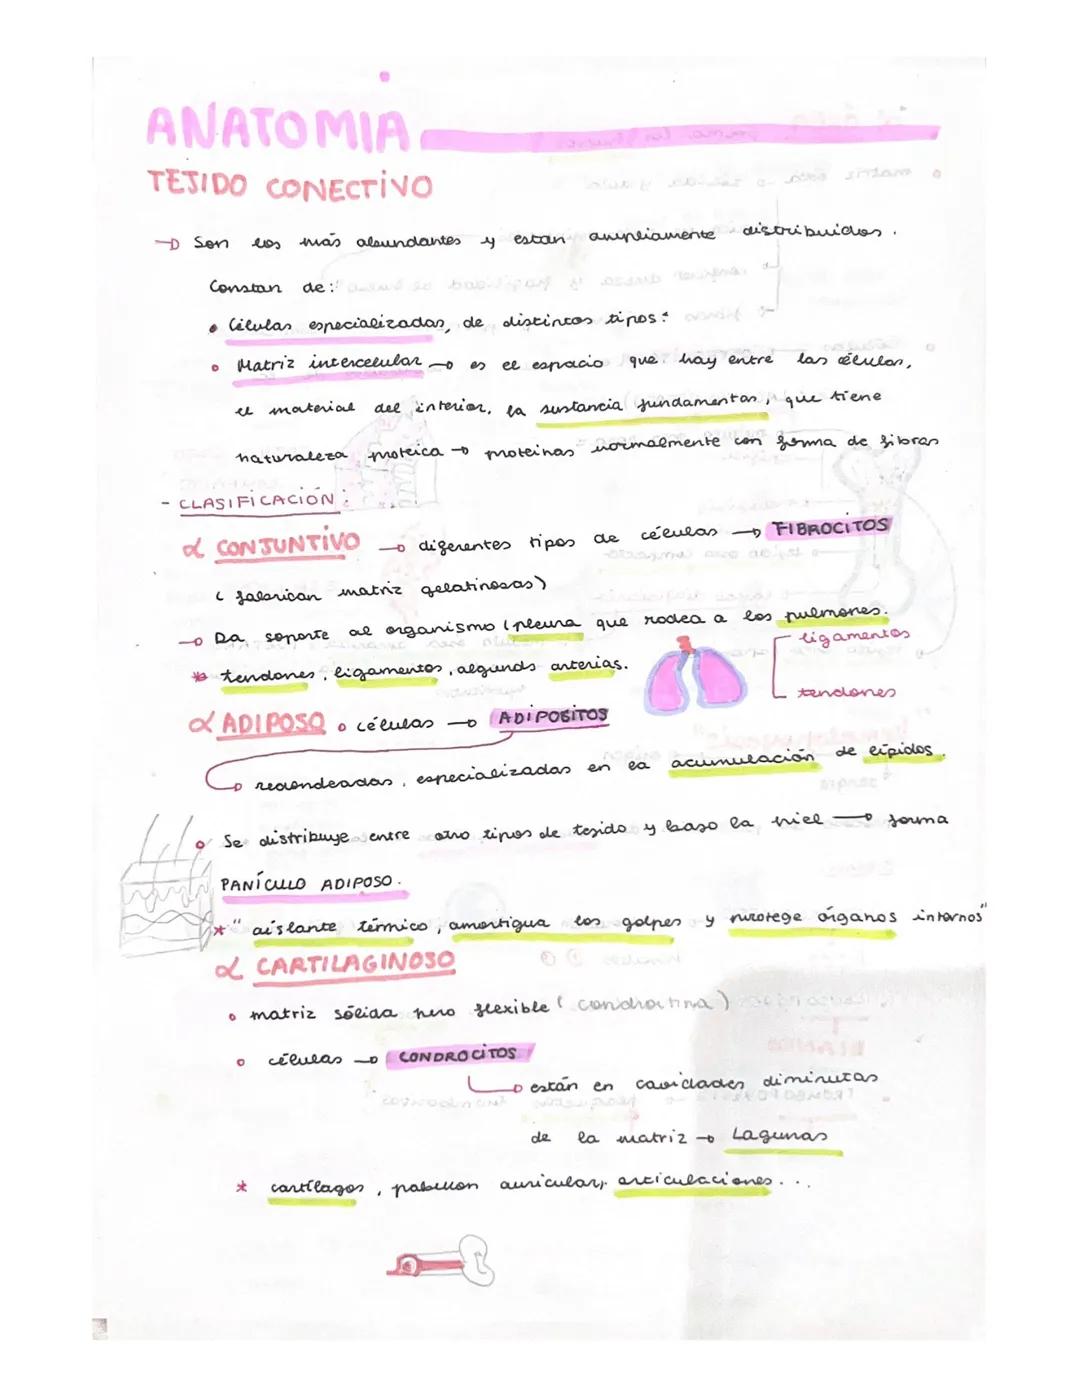 ANATOMIA
TEJIDO CONECTIVO
→ Son los más abundantes y estan ampliamente distribuidos.
Constan de:
• Células especializadas, de distintos tipos.
• Matriz intercelular → es el espacio que hay entre las células,
el material del interior, la sustancia fundamentas, que tiene
naturaleza proteica → proteinas normalmente con forma de fibras
- CLASIFICACIÓN:
α CONJUNTIVO → diferentes tipos de células → FIBROCITOS
(fabrican matriz gelatinosas)
→ Da soporte al organismo (pleura que rodea a los pulmones.
ligamentos
* tendones, ligamentos, algunas arterias.
tendones
α ADIPOSO • células → ADIPOSITOS
→ redondeadas, especializadas en la acumulación de lípidos.
• Se distribuye entre otro tipos de tejido y bajo la piel → forma
PANÍCULO ADIPOSO.
* "aislante térmico, amortigua los golpes y protege órganos internos"
α CARTILAGINOSO
• matriz sólida pero flexible (condroitina)
• células → CONDROCITOS
→ están en cavidades diminutas
de la matriz → Lagunas
* cartílagos, pabellon auricular, articulaciones...